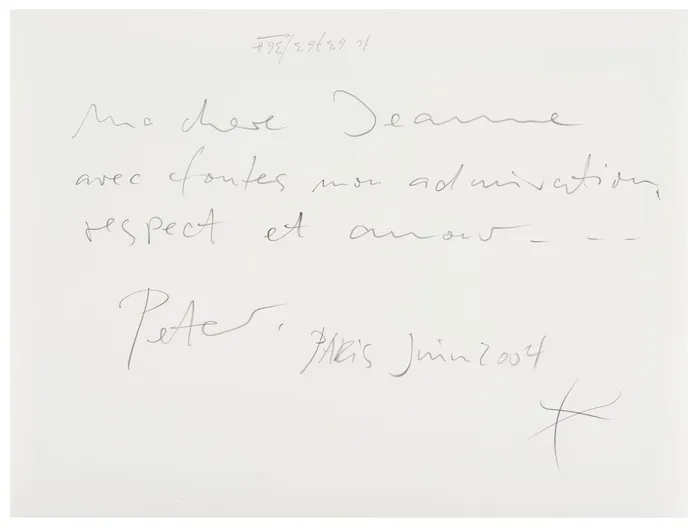 Ma chere Jeanne
avec toutes mon admiration,
respect et amour - - -
Peter.
PARIS Juin 2004